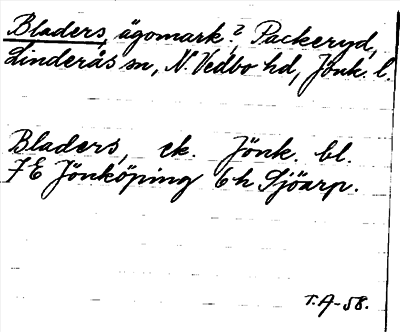 Bladers, ägomark? Packeryd,
Linderås sn, N. Vedbo hd, Jönk. l.
Bladers, ek. Jönk. bl.
7E Jönköping 6h Sjöarp.
T.A-58.